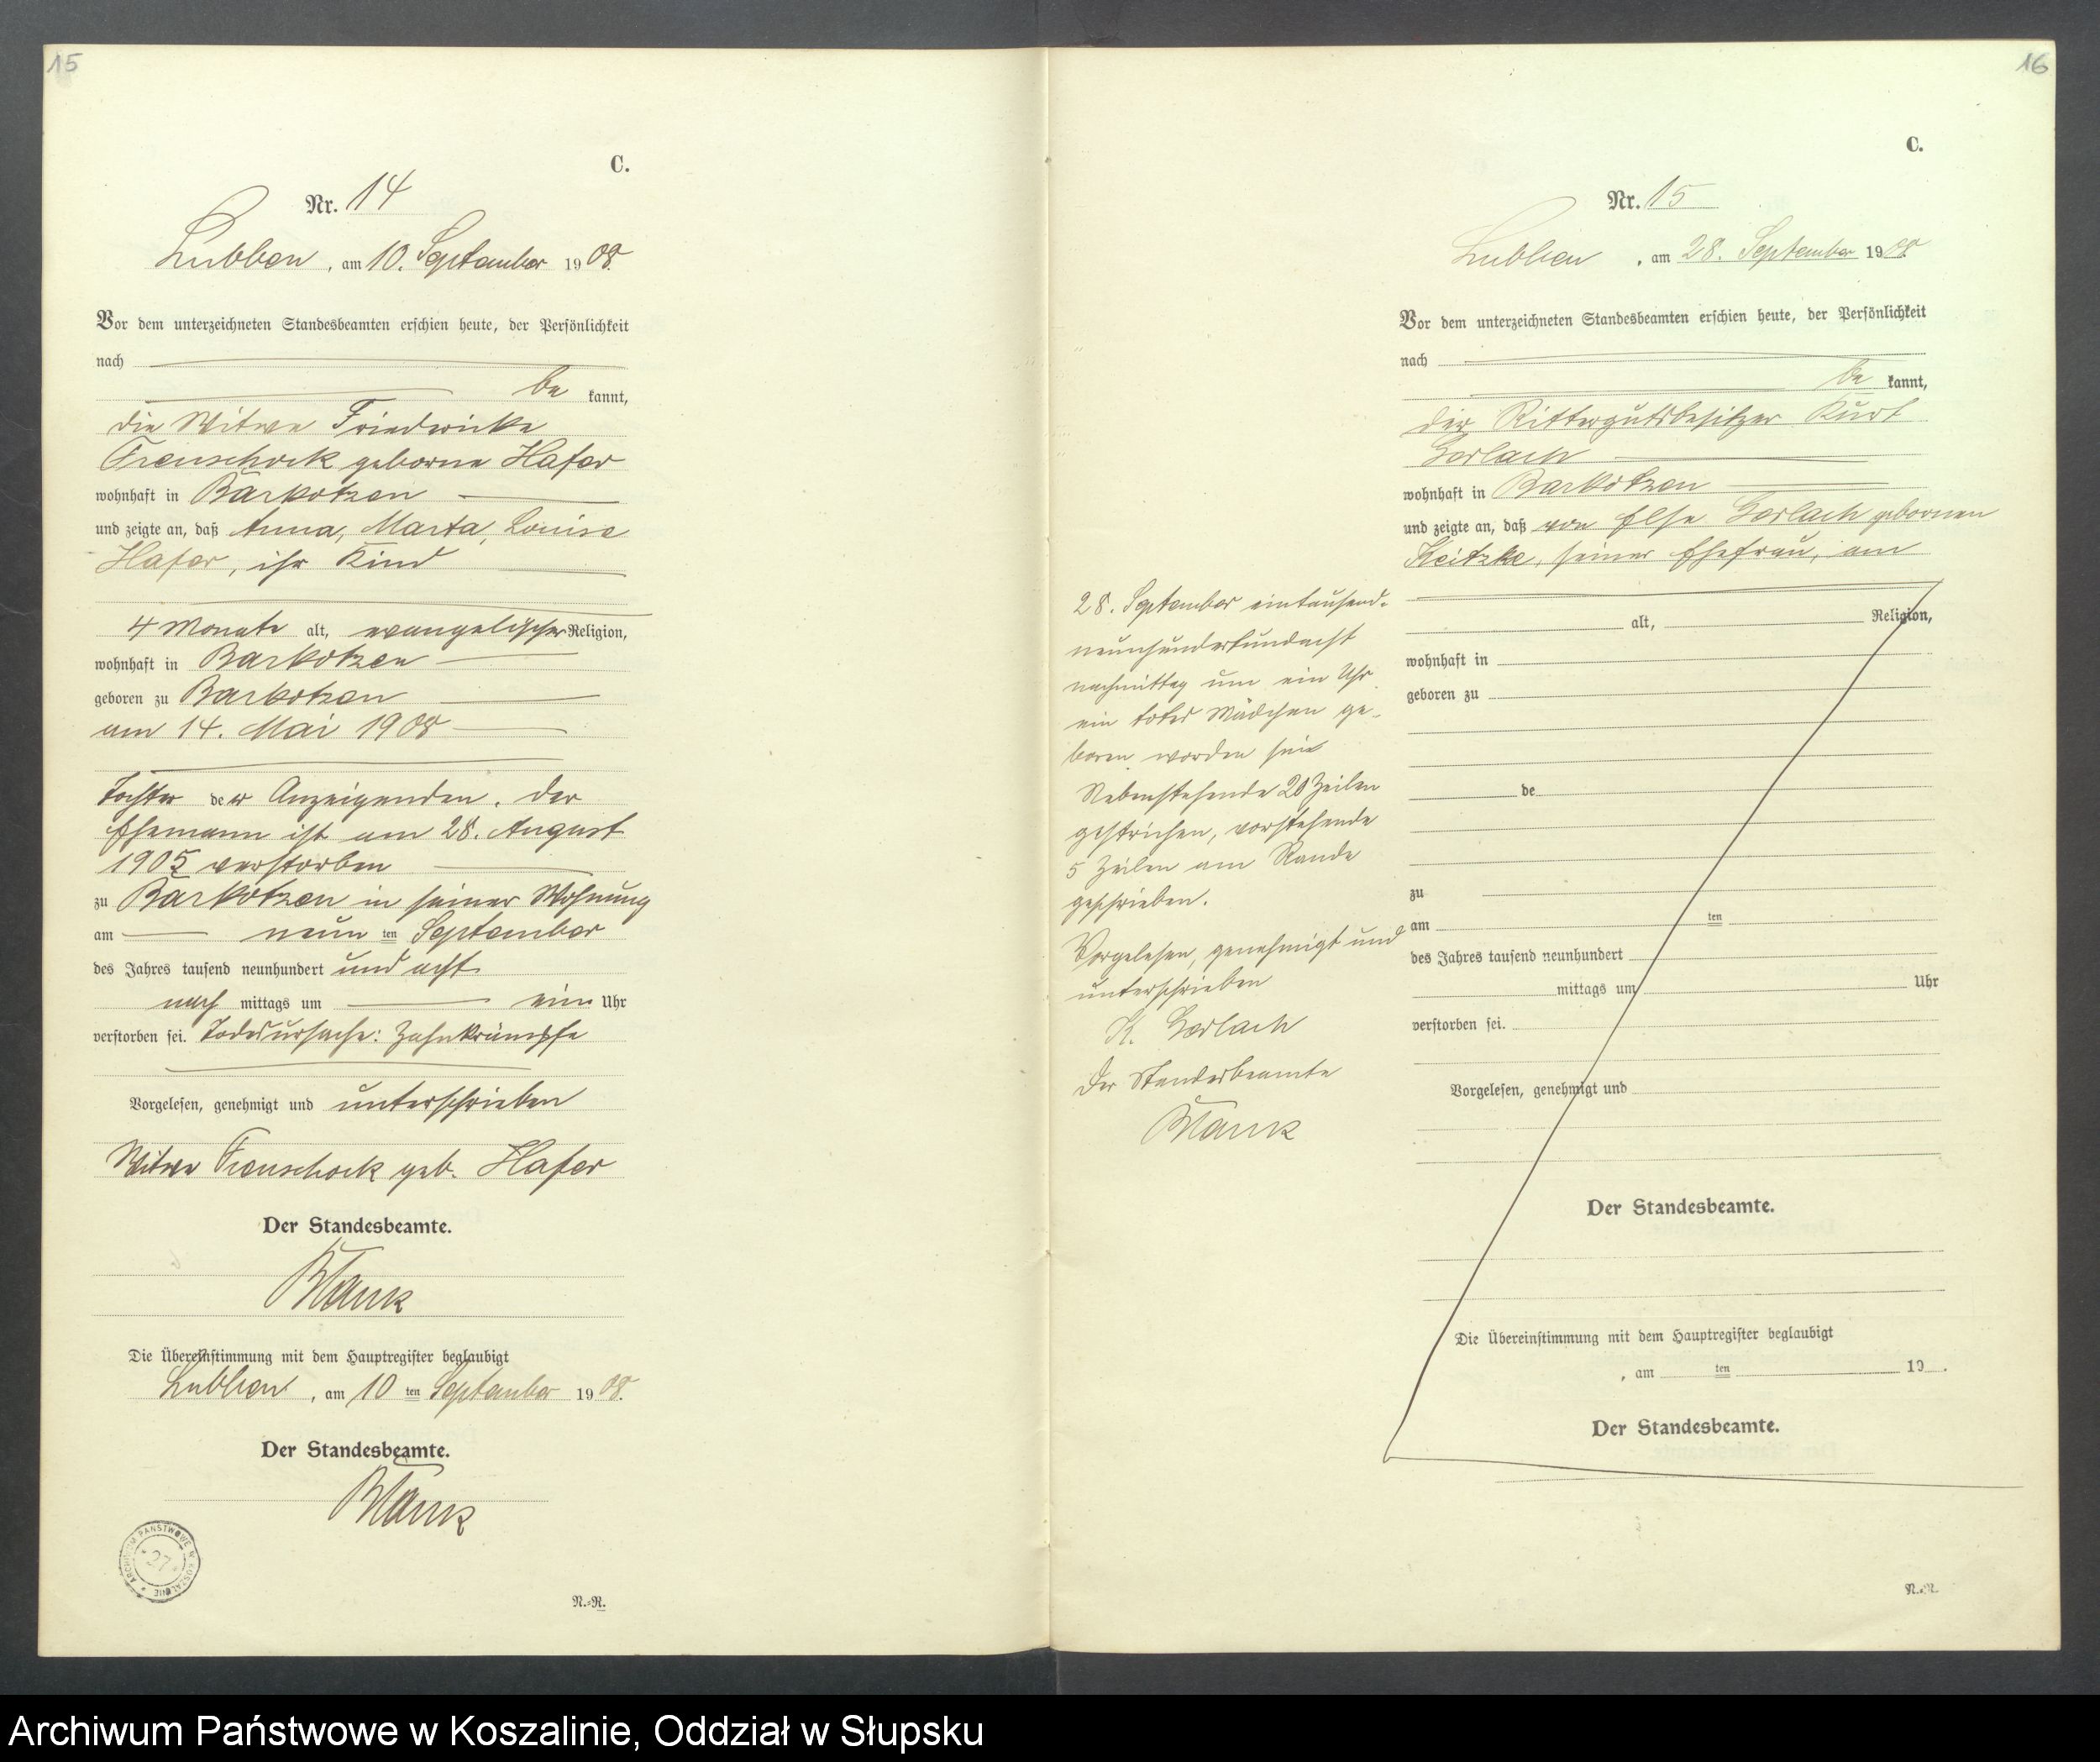 15
C.
Nr. 14
Lubben, am 10. September 1908.
Vor dem unterzeichneten Standesbeamten erschien heute, der Persönlichkeit
nach
be kannt,
die Witwe Friedericke
geborne Hafer
wohnhaft in Barkotzen
und zeigte an, daß Anna, Marta, Louise
Hafer, ihr Kind
4 Monate alt, evangelischer Religion,
wohnhaft in Barkotzen
geboren zu Barkotzen
am 14. Mai 1908
Tochter der Anzeigenden. Der
Ehemann ist am 28. August
1905 verstorben
zu Barkotzen in seiner Wohnung
am neun ten September
des Jahres tausend neunhundert und acht
nach mittags um ein Uhr
verstorben sei. Todesursache: Zahnkrämpfe
Vorgelesen, genehmigt und unterschrieben
Witwe geb. Hafer
Der Standesbeamte.
Die Übereinstimmung mit dem Hauptregister beglaubigt
Lubben, am 10 ten September 1908.
Der Standesbeamte.
ARCHIWUM PAŃSTWOWE W KOSZALINIE
27
N.-R.
16
C.
Nr. 15
Lubben, am 28. September 1908
Vor dem unterzeichneten Standesbeamten erschien heute, der Persönlichkeit
nach
be kannt,
der Rittergutsbesitzer Kurt
Gerlach
wohnhaft in Barkotzen
und zeigte an, daß von Else Gerlach gebornen
Keitzke, seiner Ehefrau, am
28. September eintausend-
neunhundertundacht
nachmittag um ein Uhr
ein totes Mädchen ge-
boren worden sei
Nebenstehende 20 Zeilen
gestrichen, vorstehende
5 Zeilen am Rande
geschrieben.
Vorgelesen, genehmigt und
unterschrieben
K. Gerlach
Der Standesbeamte
alt, Religion,
wohnhaft in
geboren zu
de
zu
am ten
des Jahres tausend neunhundert
mittags um Uhr
verstorben sei.
Vorgelesen, genehmigt und
Der Standesbeamte.
Die Übereinstimmung mit dem Hauptregister beglaubigt
, am ten 19 .
Der Standesbeamte.
N.-R.
Archiwum Państwowe w Koszalinie, Oddział w Słupsku